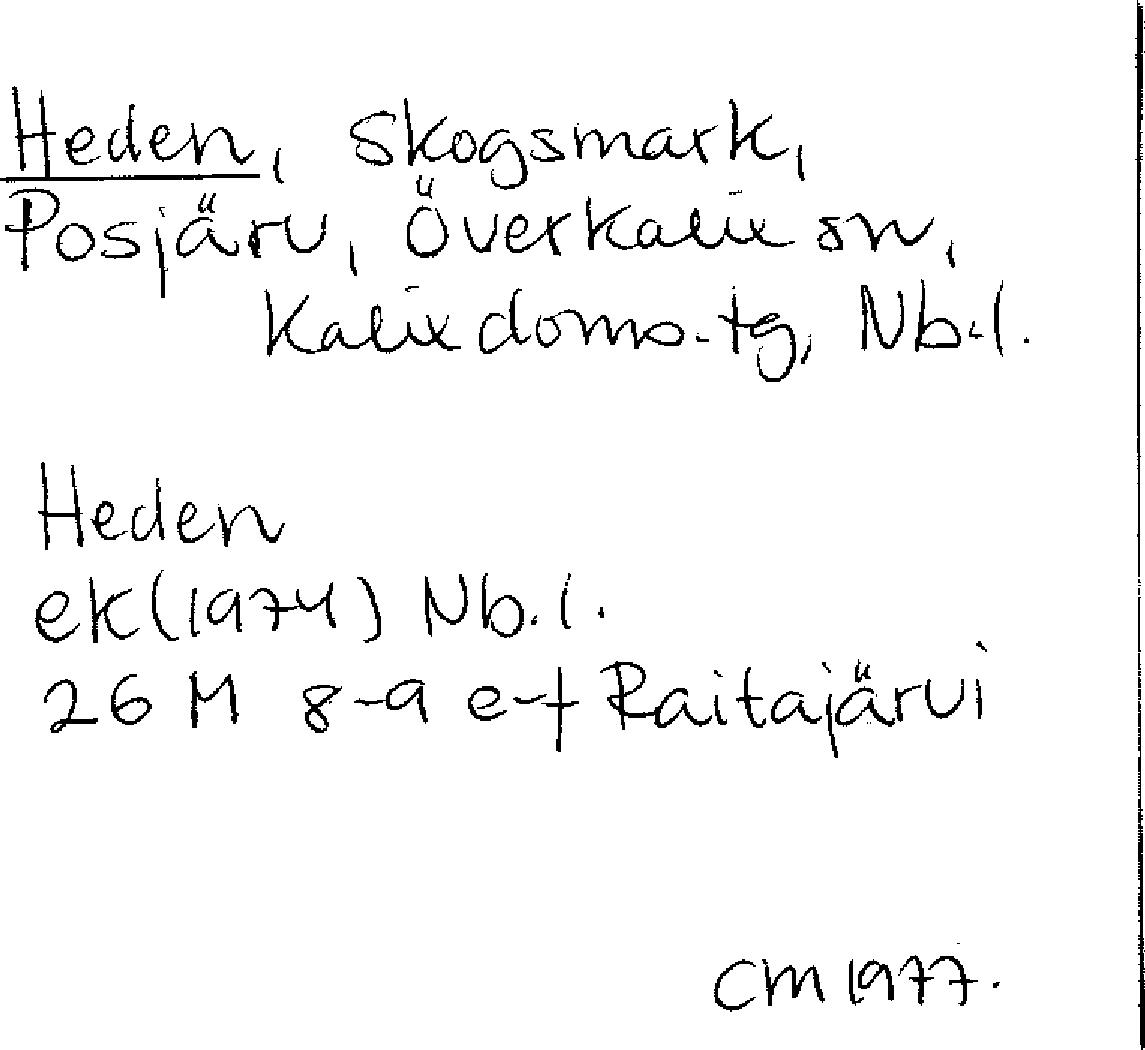 Heden, skogsmark,
Posjärv, Överkalix sn,
Kalix doms.tg, Nb.l.
Heden
ek(1974) Nb.l.
26 M 8-9 e-f Raitajärvi
CM 1977.